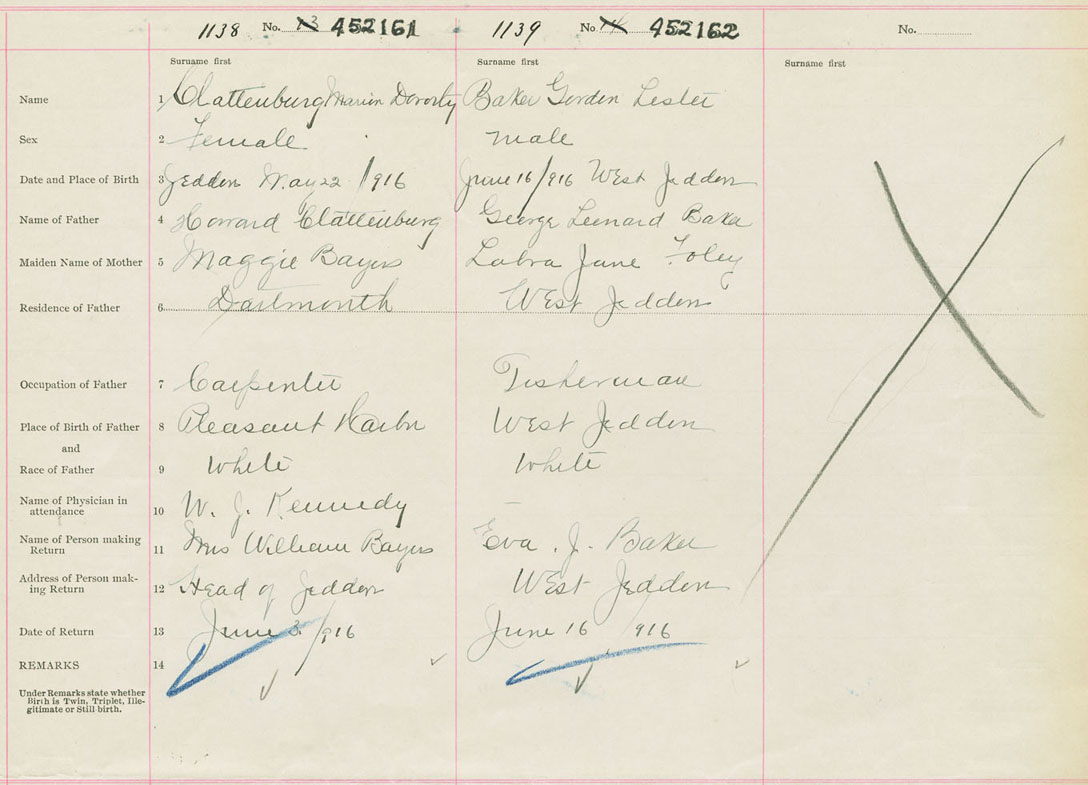 1138 No. 13 452161 1139 No 14 452162 No.
Surname first Surname first Surname first
Name 1 Clattenburg Marion Dororty Baker Gorden Lester
Sex 2 Female male
Date and Place of Birth 3 Jeddon May 22 /916 June 16/916 West Jeddon
Name of Father 4 Howard Clattenburg George Leonard Baker
Maiden Name of Mother 5 Maggie Bayers Labra Jane Foley
Residence of Father 6 Dartmonth West Jeddon
Occupation of Father 7 Carpenter Fisherman
Place of Birth of Father 8 Pleasant Harbor West Jeddon
and
Race of Father 9 White White
Name of Physician in
attendance 10 W. J. Kennedy
Name of Person making
Return 11 Mrs William Bayers Eva . J. Baker
Address of Person mak-
ing Return 12 Head of Jeddon West Jeddon
Date of Return 13 June 3 /916 June 16 /916
REMARKS 14
Under Remarks state whether
Birth is Twin, Triplet, Ille-
gitimate or Still-birth.